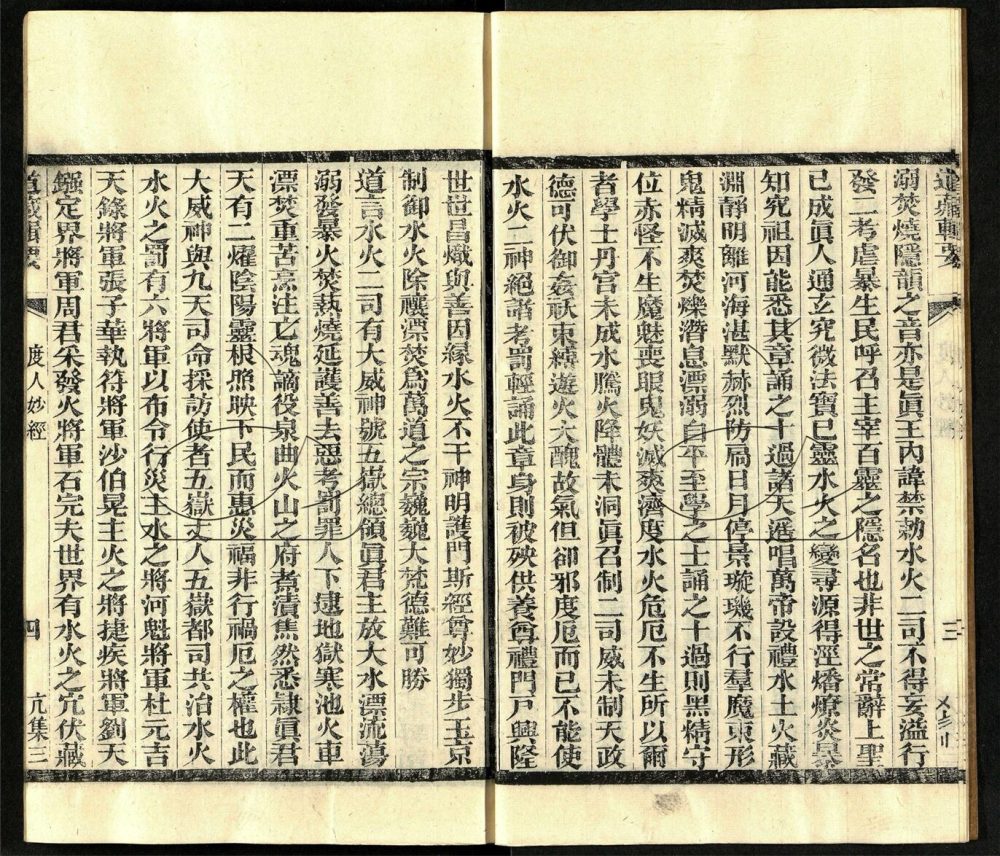 溺焚燒隱韻之音亦是眞王內諱禁勅水火二司不得妄溢行
發二考虐暴生民呼召主宰百靈之隱名也非世之常辭上聖
已成眞人通玄究微法寶巳靈水火之變尋源得涇燔燎炎暴
知究祖因能悉其章誦之十過諸天遙唱萬帝設禮水土火藏
淵靜明離河海湛默赫烈防局日月停景璇璣不行羣魔束形
鬼精滅爽焚爍潛息漂溺自平至學之士誦之十過則黑精守
位赤怪不生魔魅喪眼鬼妖滅爽濟度水火危厄不生所以爾
者學士丹宮未成水騰火降體未洞眞召制二司威未制天政
德可伏御姦祅束縛遊火大醜故氣但卻邪度厄而已不能使
水火二神絕諧考罰輕誦此章身則被殃供養尊禮門戶興隆
道藏輯要
三
世世昌熾與善因緣水火不干神明護門斯經尊妙獨步玉京
制御水火除禳漂焚爲萬道之宗巍巍大梵德難可勝
道言水火二司有大威神號五嶽總領眞君主放大水漂流蕩
溺發暴火焚熱燒延護善去惡考罰罪人下逮地獄寒池火車
漂焚重苦烹注亡魂謫役泉曲火山之府煮漬焦然悉隸眞君
天有二燿陰陽靈根照映下民而惠災福非行禍厄之權也此
大威神與九天司命採訪使者五嶽丈人五嶽都司共治水火
水火之罰有六將軍以布令行災主水之將河魁將軍杜元吉
天錄將軍張子華執符將軍沙伯晃主火之將捷疾將軍劉天
鏹定界將軍周君朱發火將軍石完夫世界有水火之宂伏藏
道藏輯要
度人妙經
四
亢集三